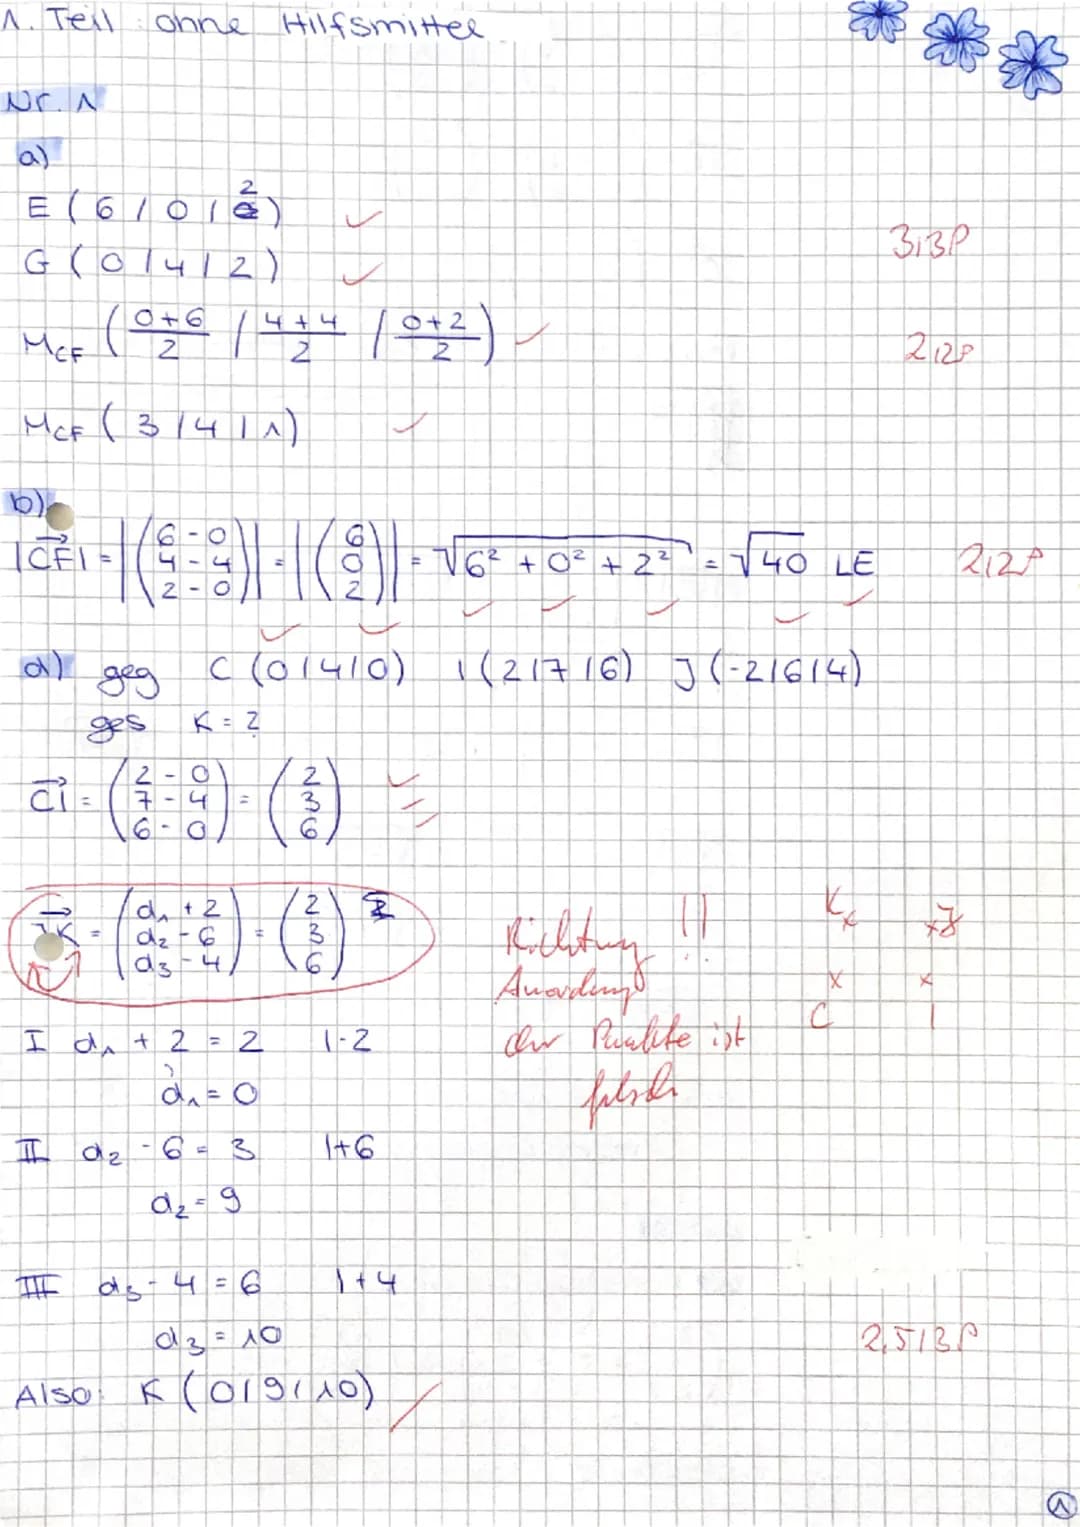 1. Teil ohne Hilfsmittel
Nr. 1
a)
E (6/0/2) ✓
G (0/4/2) ✓
3/3P
M_CF ((0+6)/2 / (4+4)/2 / (0+2)/2) ✓
2/2P
M_CF (3/4/1) ✓
b)
|CF| = |(6-0 4-4 2-0)| = |(6 0 2)| = √(6² + 0² + 2²) = √40 LE 2/2P
d) geg C (0/4/0) I (2/7/6) J (-2/6/4)
ges K = ?
CI = (2-0 7-4 6-0) = (2 3 6)
JK = (d₁+2 d₂-6 d₃-4) = (2 3 6)
Richtung !!
Anordnung
der Punkte ist
falsch
K x x J
x x
C I
I d₁ + 2 = 2 |-2
d₁ = 0
II d₂ - 6 = 3 |+6
d₂ = 9
III d₃ - 4 = 6 |+4
d₃ = 10
2,5/3P
Also: K (0/9/10)
1